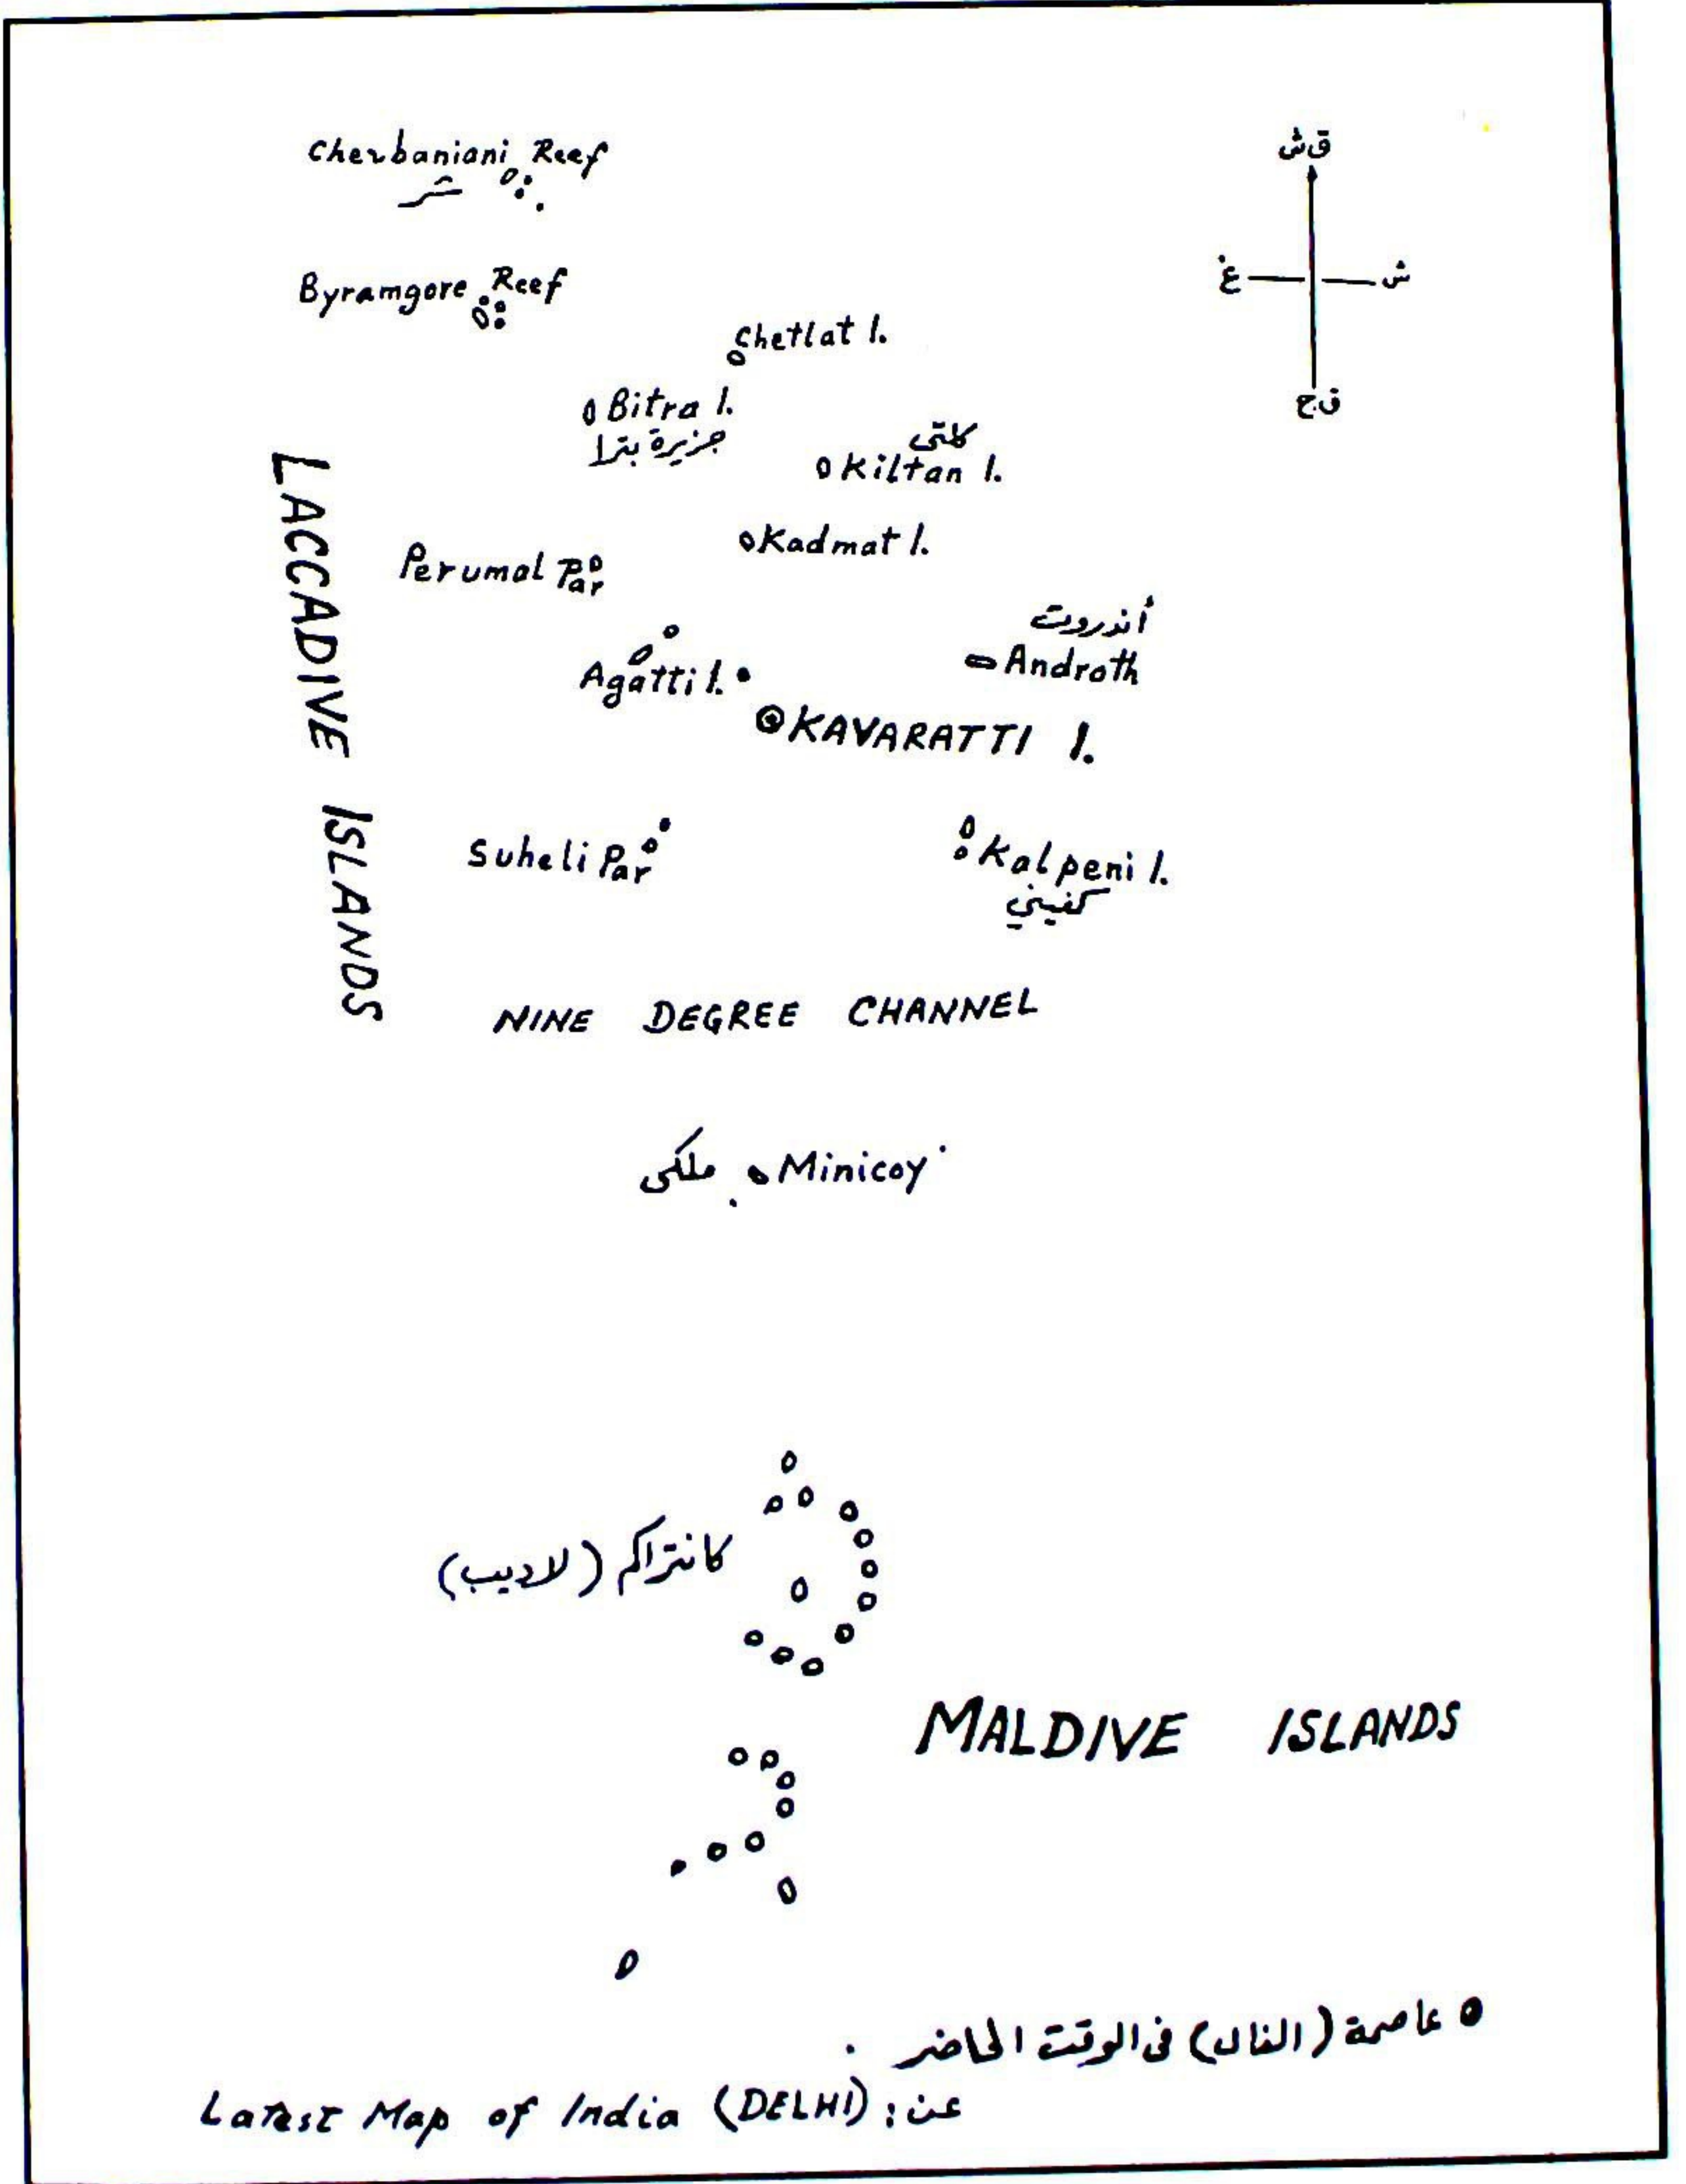 Cherbaniani Reef
شر
Byramgore Reef
ق ش
غ
ش
ق ج
Chetlat I.
Bitra I.
جزيرة بترا
كلتى
Kiltan I.
Kadmat I.
Perumal Par
أندروت
Androth
Agatti I.
KAVARATTI I.
Suheli Par
Kalpeni I.
كفيني
LACCADIVE ISLANDS
NINE DEGREE CHANNEL
ملكى
Minicoy
كانتراكم (لاديب)
MALDIVE ISLANDS
عاصمة (الفال) فى الوقت الحاضر .
Latest Map of India (DELHI) : عن